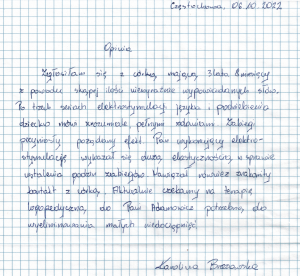 Częstochowa, 06.10.2022
Opinia
Zgłosiłam się z córką, mającą 3 lata 8 miesięcy
z powodu skąpej ilości niewyraźnie wypowiadanych słów.
Po trzech seriach elektrostymulacji języka i podniebienia
dziecko mówi zrozumiale, pełnymi zdaniami. Zabiegi
przyniosły pożądany efekt. Pan wykonujący elektro-
stymulację wykazał się dużą elastycznością w sprawie
ustalenia godzin zabiegów. Nawiązał również znakomity
kontakt z córką. Aktualnie czekamy na terapię
logopedyczną, do Pani potrzebną do
wyeliminowania małych niedociągnięć.
Karolina